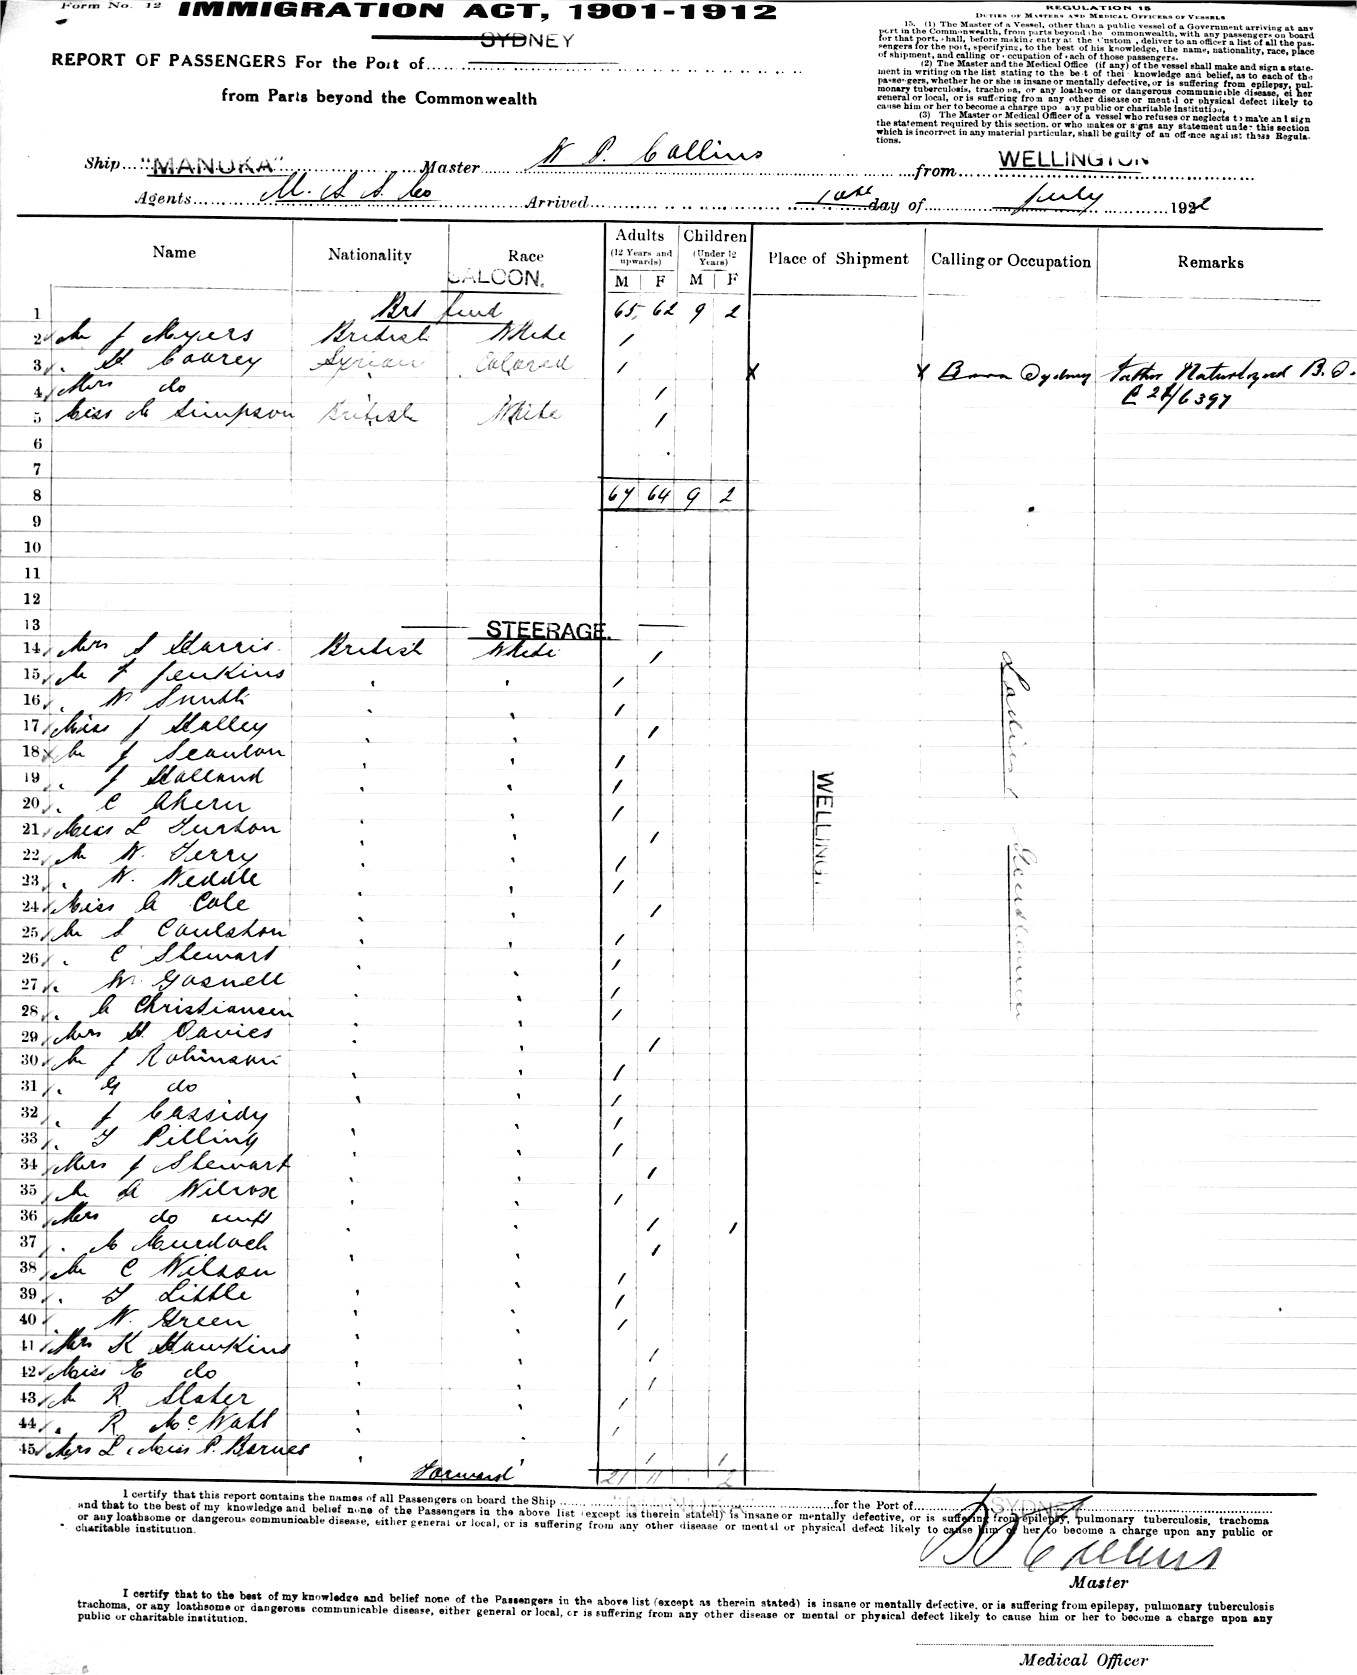 Form No. 12
IMMIGRATION ACT, 1901-1912
SYDNEY
REPORT OF PASSENGERS For the Port of
from Parts beyond the Commonwealth
REGULATION 15
DUTIES OF MASTERS AND MEDICAL OFFICERS OF VESSELS
15. (1) The Master of a Vessel, other than a public vessel of a Government arriving at any
port in the Commonwealth, from parts beyond the ommonwealth, with any passengers on board
for that port, hall, before making entry at the Custom, deliver to an officer a list of all the pas-
sengers for the post, specifying, to the best of his knowledge, the name, nationality, race, place
of shipment, and calling or occupation of each of those passengers.
(2) The Master and the Medical Office (if any) of the vessel shall make and sign a state-
ment in writing on the list stating to the best of their knowledge and belief, as to each of the
passengers, whether he or she is insane or mentally defective, or is suffering from epilepsy, pul-
monary tuberculosis, trachoma, or any loathsome or dangerous communicible disease, ei her
general or local, or is suffering from any other disease or mental or physical defect likely to
cause him or her to become a charge upo any public or charitable institution.
(3) The Master or Medical Officer of a vessel who refuses or neglects to make and sign
the statement required by this section, or who makes or signs any statement under this section
which is incorrect in any material particular, shall be guilty of an offence against these Regula-
tions.
Ship "MANUKA" Master W P. Collins from WELLINGTON
Agents M. S S Co Arrived 10th day of July 1922
Name Nationality Race Adults (12 Years and upwards) Children (Under 12 Years) Place of Shipment Calling or Occupation Remarks
SALOON.
M F M F
1 Brt fwd 65 62 9 2
2 Mr J Myers British White /
3 " Coorey Syrian Colored / x x Born Sydney Father Naturalized B.S.
4 Mrs do / C 21/6397
5 Miss Simpson British White /
6
7
8 67 64 9 2
9
10
11
12
13 STEERAGE.
14 Mrs S Harris British White /
15 Mr F Jenkins " " /
16 " W Smith " " /
17 Miss J Halley " " /
18 Mr J Scanlon " " /
19 " J Holland " " /
20 " C Ahern " " /
21 Miss L Turton " " /
22 Mr W. Terry " " /
23 " W. Weddle " " /
24 Miss A Cole " " /
25 Mr S Coulston " " /
26 " C Stewart " " /
27 " W Gosnell " " /
28 " A Christiansen " " /
29 Mrs H. Davies " " /
30 Mr J Robinson " " /
31 " G do " " /
32 " J Cassidy " " /
33 " T Pilling " " /
34 Mrs J Stewart " " /
35 Mr A Wilrose " " /
36 Mrs do inft " " / /
37 " M Murdoch " " /
38 Mr C Wilson " " /
39 " T Little " " /
40 " W. Green " " /
41 Mrs K Hawkins " " /
42 Miss E do " " /
43 Mr R Slater " " /
44 " R McWatt " " /
45 Mrs L & Miss P. Barnes " " / /
Forward 21 11 . 2
WELLING
Ladies & Gentlemen
I certify that this report contains the names of all Passengers on board the Ship for the Port of SYDNEY
and that to the best of my knowledge and belief none of the Passengers in the above list (except as therein stated) is insane or mentally defective, or is suffering from epilepsy, pulmonary tuberculosis, trachoma
or any loathsome or dangerous communicable disease, either general or local, or is suffering from any other disease or mental or physical defect likely to cause him or her to become a charge upon any public or
charitable institution.
W P Collins
Master
I certify that to the best of my knowledge and belief none of the Passengers in the above list (except as therein stated) is insane or mentally defective, or is suffering from epilepsy, pulmonary tuberculosis
trachoma, or any loathsome or dangerous communicable disease, either general or local, or is suffering from any other disease or mental or physical defect likely to cause him or her to become a charge upon any
public or charitable institution.
Medical Officer